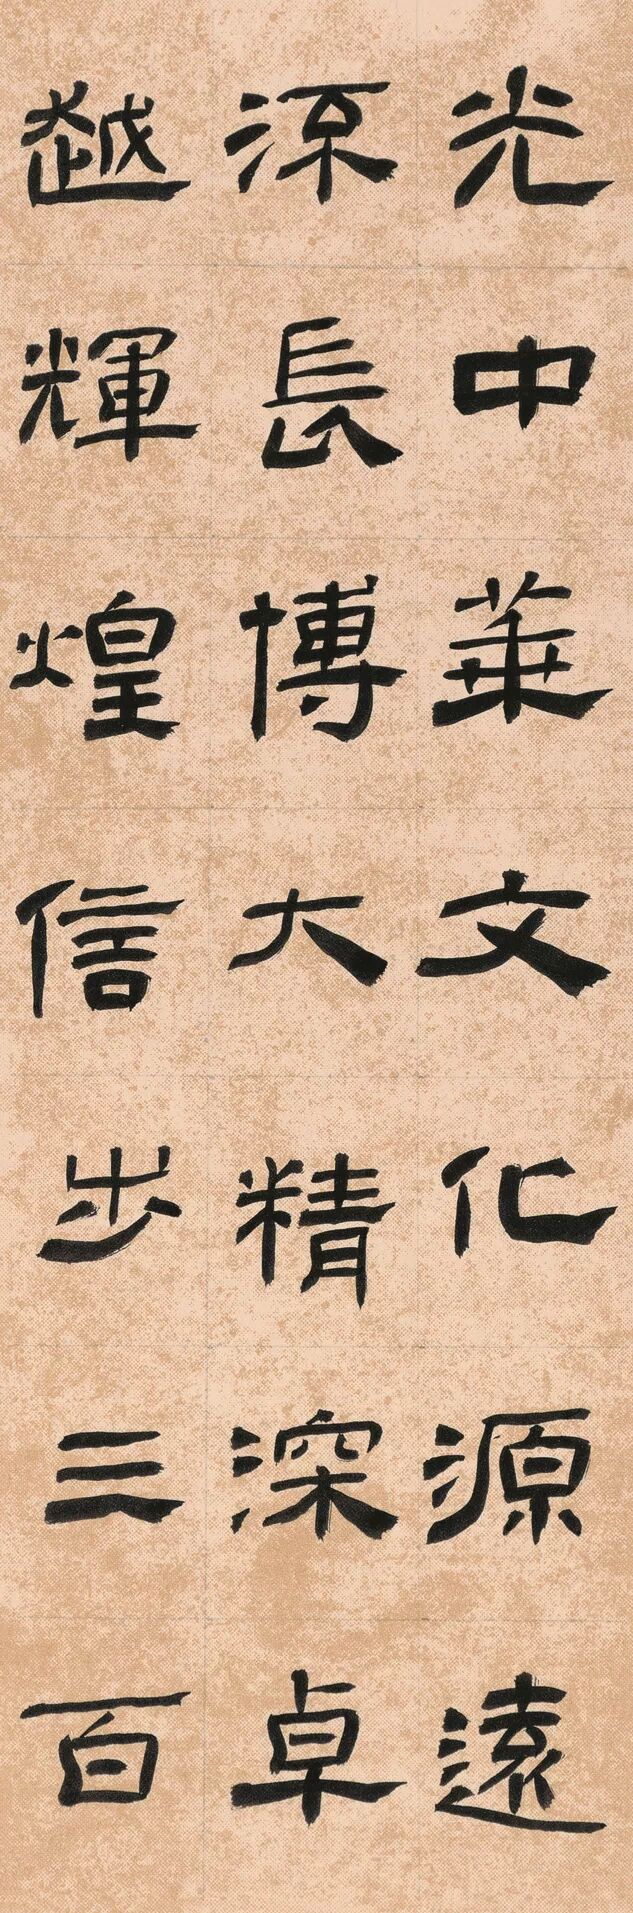 光中華文化源遠
流長博大精深卓
越輝煌信步三百